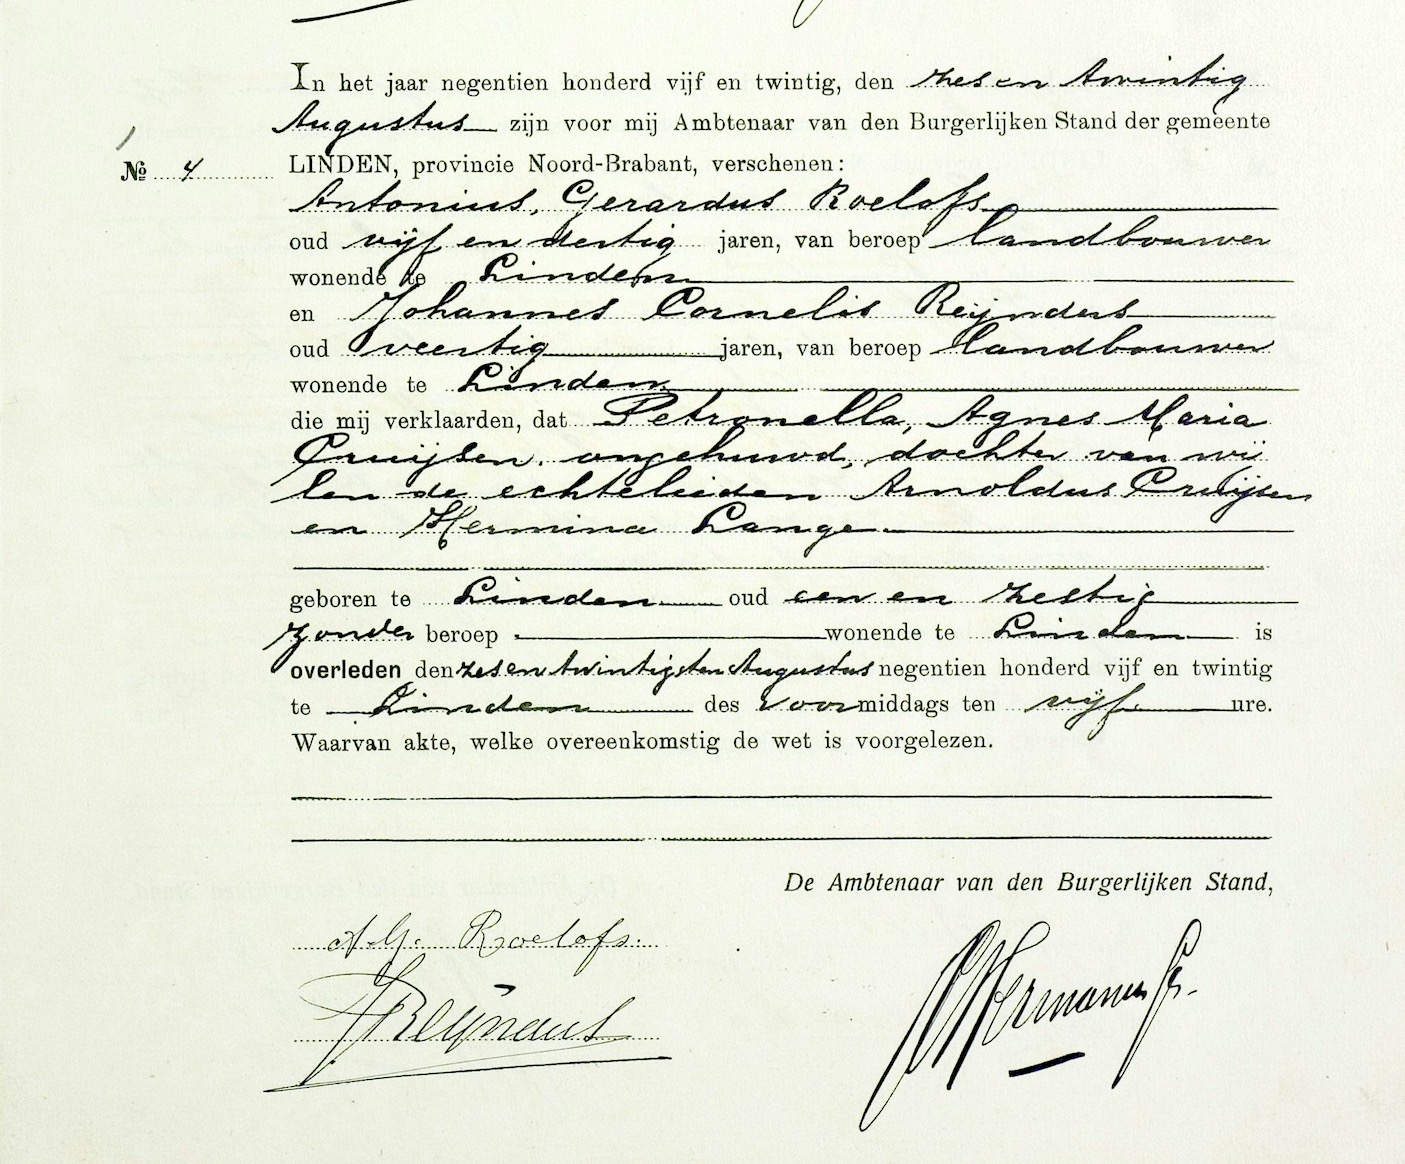 In het jaar negentien honderd vijf en twintig, den zes en twintig
Augustus zijn voor mij Ambtenaar van den Burgerlijken Stand der gemeente
No 4 LINDEN, provincie Noord-Brabant, verschenen:
Antonius, Gerardus Roelofs
oud vijf en dertig jaren, van beroep landbouwer
wonende te Linden
en Johannes Cornelis Reijnders
oud veertig jaren, van beroep landbouwer
wonende te Linden
die mij verklaarden, dat Petronella, Agnes Maria
Cruijsen, ongehuwd, dochter van wij
len de echtelieden Arnoldus Cruijsen
en Hermina Lange
geboren te Linden oud een en zestig
zonder beroep wonende te Linden is
overleden den zes en twintigsten Augustus negentien honderd vijf en twintig
te Linden des voormiddags ten vijf ure.
Waarvan akte, welke overeenkomstig de wet is voorgelezen.
De Ambtenaar van den Burgerlijken Stand,
A.G. Roelofs.
Hermanus